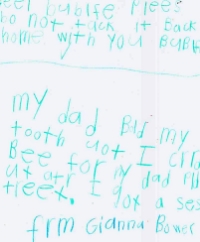 eel bublfe Plees
Do not tack it Back
home. With You BuBl
my dad Bld my
tooth uot I cri
Bee for my dad Pll
ut atr I
teet. I got a ses
frm Gianna Bower